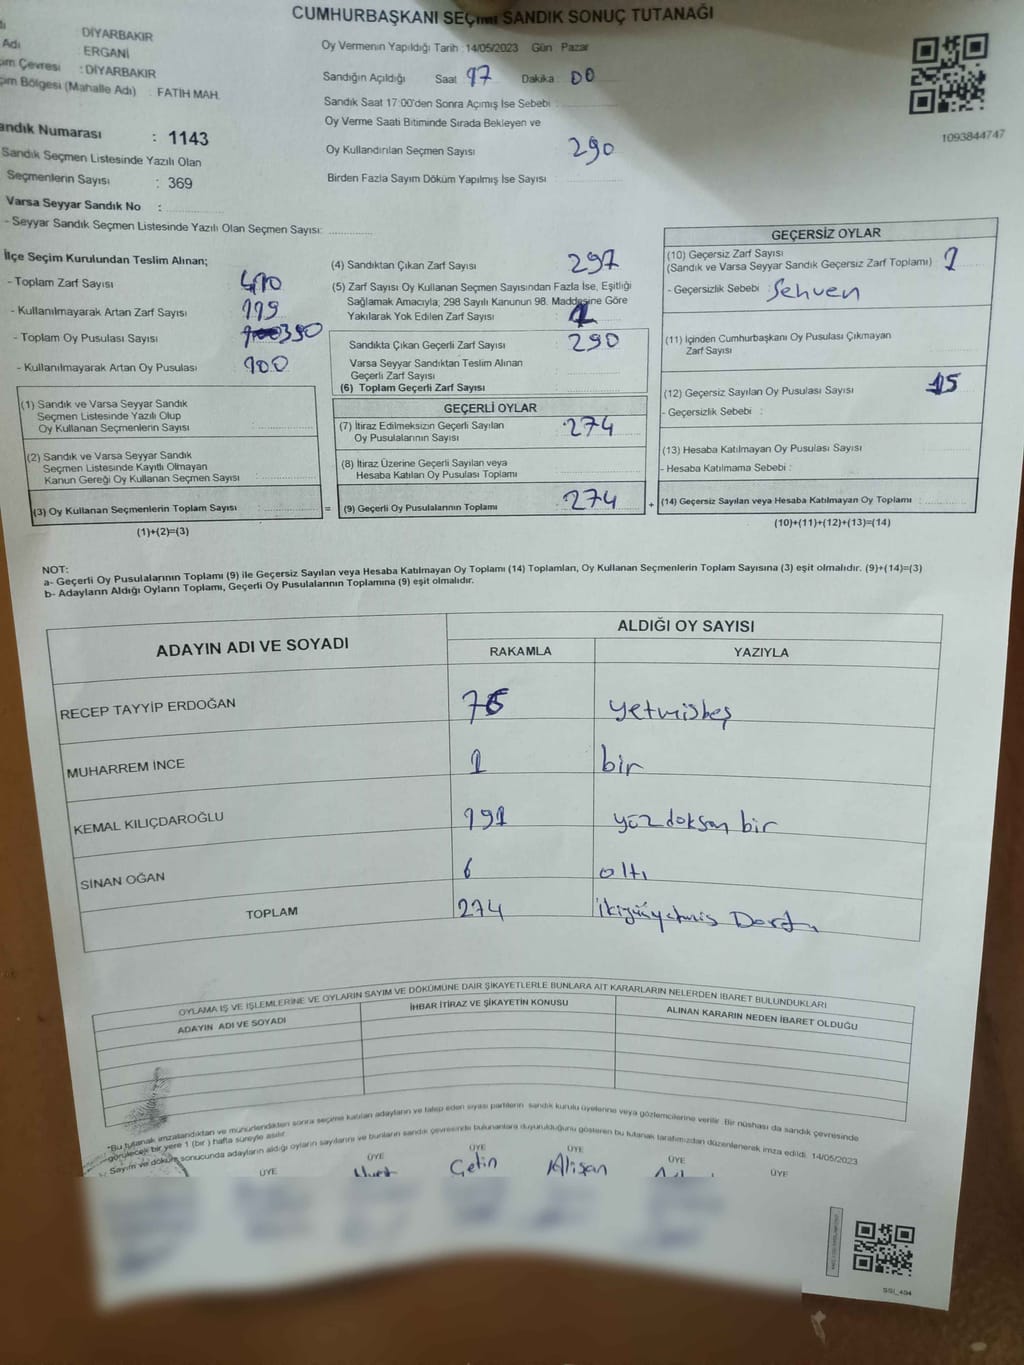 CUMHURBAŞKANI SEÇİMİ SANDIK SONUÇ TUTANAĞI
DİYARBAKIR
Adı : ERGANİ
im Çevresi : DİYARBAKIR
çim Bölgesi (Mahalle Adı) : FATİH MAH.
andık Numarası : 1143
Sandık Seçmen Listesinde Yazılı Olan
Seçmenlerin Sayısı : 369
Varsa Seyyar Sandık No :
- Seyyar Sandık Seçmen Listesinde Yazılı Olan Seçmen Sayısı:
Oy Vermenin Yapıldığı Tarih : 14/05/2023 Gün Pazar
Sandığın Açıldığı Saat 17 Dakika : 00
Sandık Saat 17:00'den Sonra Açımış İse Sebebi :
Oy Verme Saati Bitiminde Sırada Bekleyen ve
Oy Kullandırılan Seçmen Sayısı 290
Birden Fazla Sayım Döküm Yapılmış İse Sayısı :
1093844747
İlçe Seçim Kurulundan Teslim Alınan;
- Toplam Zarf Sayısı : 410
- Kullanılmayarak Artan Zarf Sayısı : 119
- Toplam Oy Pusulası Sayısı : 390
- Kullanılmayarak Artan Oy Pusulası : 100
(1) Sandık ve Varsa Seyyar Sandık
Seçmen Listesinde Yazılı Olup
Oy Kullanan Seçmenlerin Sayısı :
(2) Sandık ve Varsa Seyyar Sandık
Seçmen Listesinde Kayıtlı Olmayan
Kanun Gereği Oy Kullanan Seçmen Sayısı :
(3) Oy Kullanan Seçmenlerin Toplam Sayısı :
(1)+(2)=(3)
(4) Sandıktan Çıkan Zarf Sayısı : 291
(5) Zarf Sayısı Oy Kullanan Seçmen Sayısından Fazla İse, Eşitliği
Sağlamak Amacıyla; 298 Sayılı Kanunun 98. Maddesine Göre
Yakılarak Yok Edilen Zarf Sayısı : 1
Sandıkta Çıkan Geçerli Zarf Sayısı : 290
Varsa Seyyar Sandıktan Teslim Alınan
Geçerli Zarf Sayısı :
(6) Toplam Geçerli Zarf Sayısı :
GEÇERLİ OYLAR
(7) İtiraz Edilmeksizin Geçerli Sayılan
Oy Pusulalarının Sayısı : 274
(8) İtiraz Üzerine Geçerli Sayılan veya
Hesaba Katılan Oy Pusulası Toplamı :
= (9) Geçerli Oy Pusulalarının Toplamı : 274 +
GEÇERSİZ OYLAR
(10) Geçersiz Zarf Sayısı
(Sandık ve Varsa Seyyar Sandık Geçersiz Zarf Toplamı) : 1
- Geçersizlik Sebebi : Sehven
(11) İçinden Cumhurbaşkanı Oy Pusulası Çıkmayan
Zarf Sayısı
(12) Geçersiz Sayılan Oy Pusulası Sayısı 15
- Geçersizlik Sebebi :
(13) Hesaba Katılmayan Oy Pusulası Sayısı
- Hesaba Katılmama Sebebi :
(14) Geçersiz Sayılan veya Hesaba Katılmayan Oy Toplamı :
(10)+(11)+(12)+(13)=(14)
NOT:
a- Geçerli Oy Pusulalarının Toplamı (9) ile Geçersiz Sayılan veya Hesaba Katılmayan Oy Toplamı (14) Toplamları, Oy Kullanan Seçmenlerin Toplam Sayısına (3) eşit olmalıdır. (9)+(14)=(3)
b- Adayların Aldığı Oyların Toplamı, Geçerli Oy Pusulalarının Toplamına (9) eşit olmalıdır.
ADAYIN ADI VE SOYADI
ALDIĞI OY SAYISI
RAKAMLA YAZIYLA
RECEP TAYYİP ERDOĞAN 76 yetmişbeş
MUHARREM İNCE 1 bir
KEMAL KILIÇDAROĞLU 191 yüz doksan bir
SİNAN OĞAN 6 altı
TOPLAM 274 ikiyüzyetmiş Dört
OYLAMA İŞ VE İŞLEMLERİNE VE OYLARIN SAYIM VE DÖKÜMÜNE DAİR ŞİKAYETLERLE BUNLARA AİT KARARLARIN NELERDEN İBARET BULUNDUKLARI
ADAYIN ADI VE SOYADI İHBAR İTİRAZ VE ŞİKAYETİN KONUSU ALINAN KARARIN NEDEN İBARET OLDUĞU
*Bu tutanak imzalandıktan ve mühürlendikten sonra seçime katılan adayların ve talep eden siyasi partilerin sandık kurulu üyelerine veya gözlemcilerine verilir. Bir nüshası da sandık çevresinde
görülecek bir yere 1 (bir) hafta süreyle asılır.
Sayım ve döküm sonucunda adayların aldığı oyların sayılarını ve bunların sandık çevresinde bulunanlara duyurulduğunu gösteren bu tutanak tarafımızdan düzenlenerek imza edildi. 14/05/2023
ÜYE ÜYE ÜYE ÜYE ÜYE ÜYE
Çetin Alişan
SSİ_494